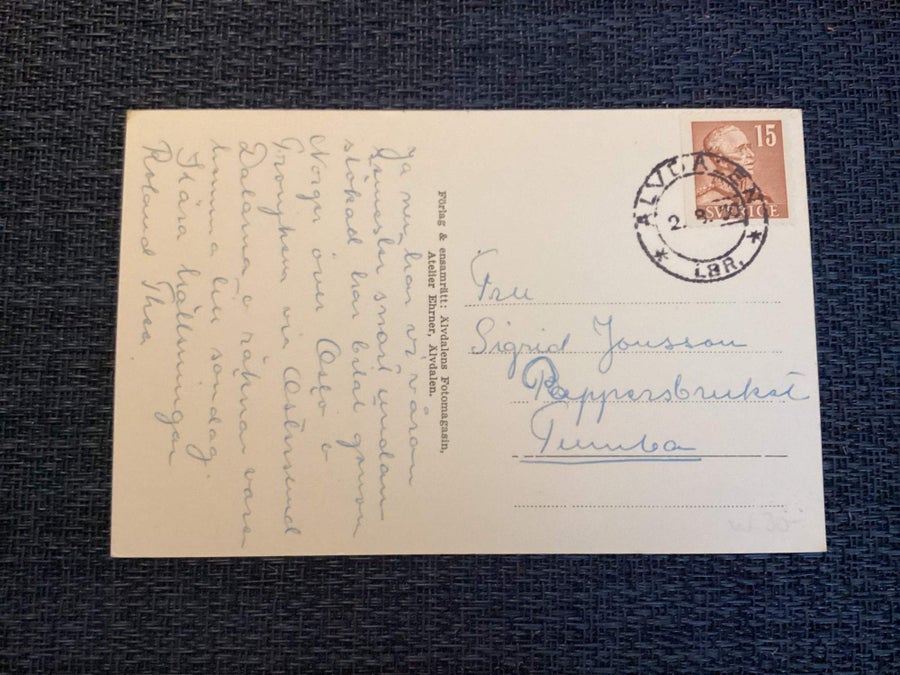 Ja nu har vi våran
semester snart undan
stökad har bilat genom
Norge över Oslo o
Tronjhem via Östersund
Dalarna o räknar vara
hemma till söndag.
Kära hälsningar
Roland Thea
Förlag & ensamrätt: Älvdalens Fotomagasin,
Atelier Ehrner, Älvdalen.
15
SVERIGE
ÄLVDALEN
2. 8.
LBR.
Fru
Sigrid Jonsson
Pappersbruket
Tumba